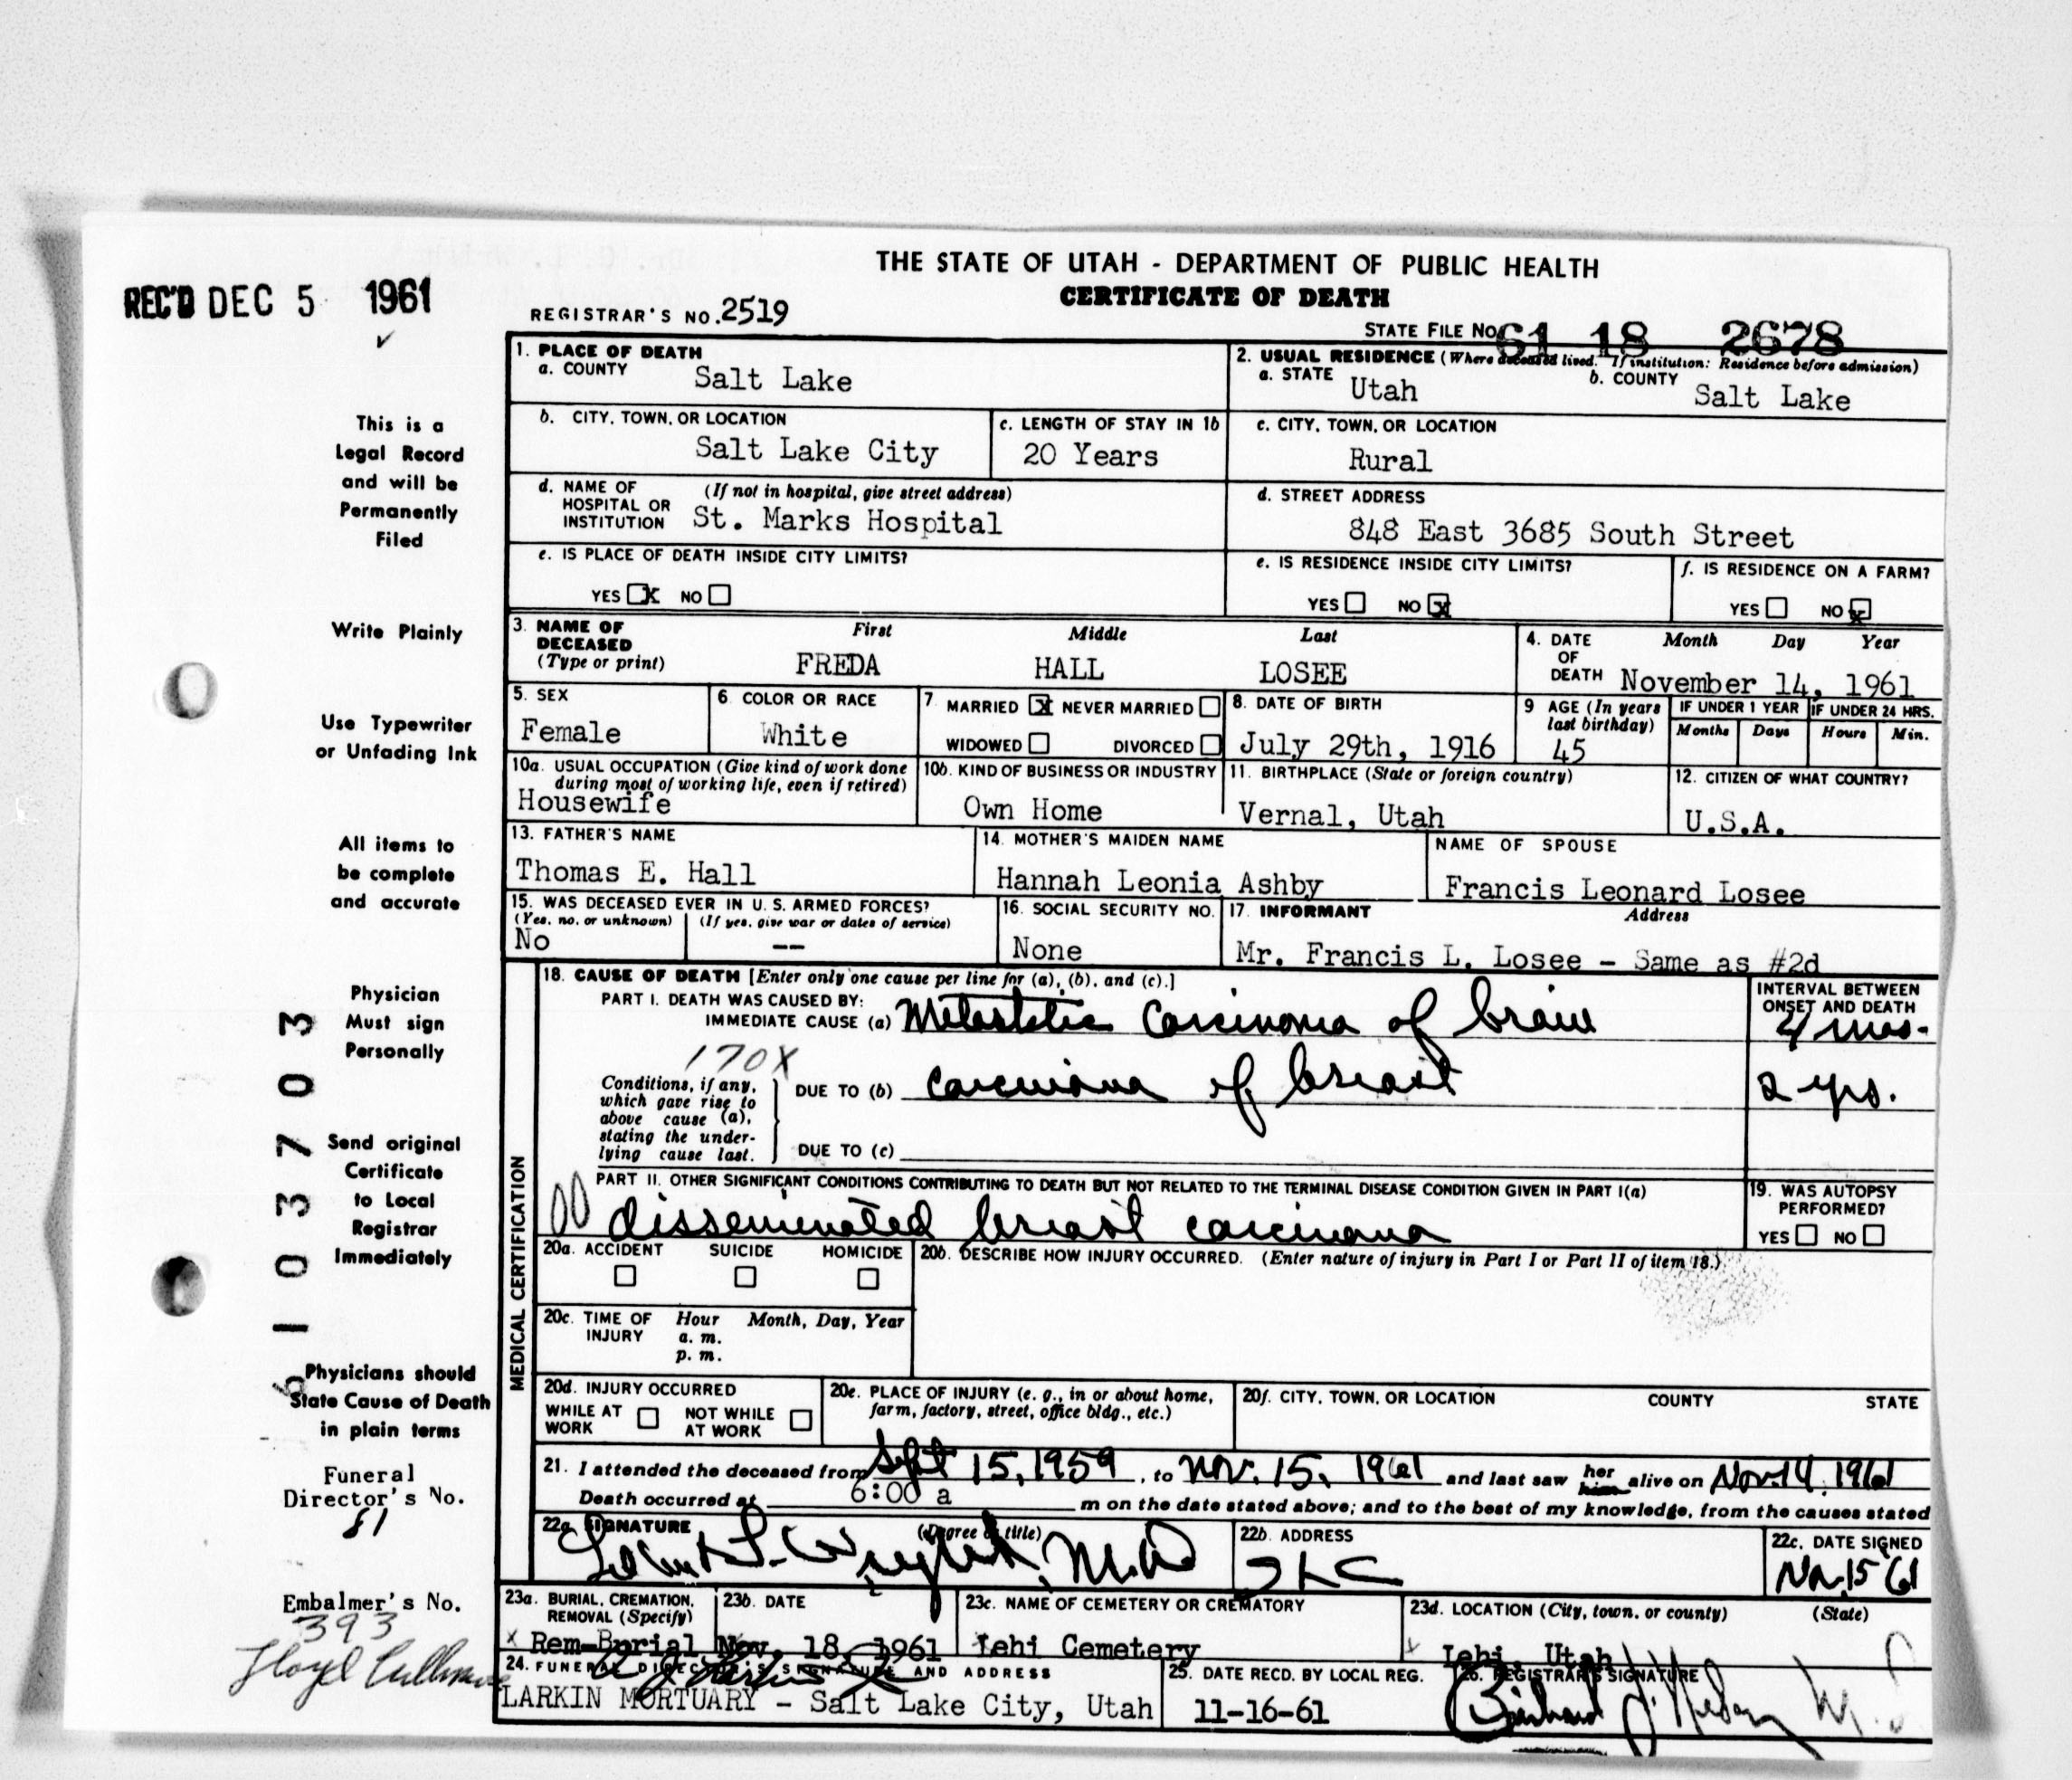 THE STATE OF UTAH - DEPARTMENT OF PUBLIC HEALTH
CERTIFICATE OF DEATH
REC'D DEC 5 1961
REGISTRAR'S NO. 2519
STATE FILE NO. 61 18 2678
This is a
Legal Record
and will be
Permanently
Filed
Write Plainly
Use Typewriter
or Unfading Ink
All items to
be complete
and accurate
Physician
Must sign
Personally
Send original
Certificate
to Local
Registrar
Immediately
Physicians should
State Cause of Death
in plain terms
Funeral
Director's No.
81
Embalmer's No.
393
Floyd
6 1 0 3 7 0 3
1. PLACE OF DEATH
a. COUNTY Salt Lake
2. USUAL RESIDENCE (Where deceased lived. If institution: Residence before admission)
a. STATE Utah b. COUNTY Salt Lake
b. CITY, TOWN, OR LOCATION Salt Lake City
c. LENGTH OF STAY IN 1b 20 Years
c. CITY, TOWN, OR LOCATION
Rural
d. NAME OF HOSPITAL OR INSTITUTION (If not in hospital, give street address)
St. Marks Hospital
d. STREET ADDRESS
848 East 3685 South Street
e. IS PLACE OF DEATH INSIDE CITY LIMITS?
YES X NO
e. IS RESIDENCE INSIDE CITY LIMITS?
YES NO X
f. IS RESIDENCE ON A FARM?
YES NO X
3. NAME OF DECEASED (Type or print)
First Middle Last
FREDA HALL LOSEE
4. DATE OF DEATH Month Day Year
November 14, 1961
5. SEX
Female
6. COLOR OR RACE
White
7. MARRIED X NEVER MARRIED
WIDOWED DIVORCED
8. DATE OF BIRTH
July 29th, 1916
9 AGE (In years last birthday)
45
IF UNDER 1 YEAR IF UNDER 24 HRS.
Months Days Hours Min.
10a. USUAL OCCUPATION (Give kind of work done during most of working life, even if retired)
Housewife
10b. KIND OF BUSINESS OR INDUSTRY
Own Home
11. BIRTHPLACE (State or foreign country)
Vernal, Utah
12. CITIZEN OF WHAT COUNTRY?
U.S.A.
13. FATHER'S NAME
Thomas E. Hall
14. MOTHER'S MAIDEN NAME
Hannah Leonia Ashby
NAME OF SPOUSE
Francis Leonard Losee
15. WAS DECEASED EVER IN U.S. ARMED FORCES?
(Yes, no, or unknown) (If yes, give war or dates of service)
No --
16. SOCIAL SECURITY NO.
None
17. INFORMANT Address
Mr. Francis L. Losee - Same as #2d
MEDICAL CERTIFICATION
18. CAUSE OF DEATH [Enter only one cause per line for (a), (b), and (c).]
PART I. DEATH WAS CAUSED BY:
IMMEDIATE CAUSE (a) Metastatic Carcinoma of brain
INTERVAL BETWEEN ONSET AND DEATH
4 mos.
170X
Conditions, if any, which gave rise to above cause (a), stating the underlying cause last.
DUE TO (b) carcinoma of breast
2 yrs.
DUE TO (c)
PART II. OTHER SIGNIFICANT CONDITIONS CONTRIBUTING TO DEATH BUT NOT RELATED TO THE TERMINAL DISEASE CONDITION GIVEN IN PART I(a)
disseminated breast carcinoma
19. WAS AUTOPSY PERFORMED?
YES NO
20a. ACCIDENT SUICIDE HOMICIDE
20b. DESCRIBE HOW INJURY OCCURRED. (Enter nature of injury in Part I or Part II of item 18.)
20c. TIME OF INJURY Hour Month, Day, Year
a. m.
p. m.
20d. INJURY OCCURRED
WHILE AT WORK NOT WHILE AT WORK
20e. PLACE OF INJURY (e. g., in or about home, farm, factory, street, office bldg., etc.)
20f. CITY, TOWN, OR LOCATION COUNTY STATE
21. I attended the deceased from Sept 15, 1959, to Nov. 15, 1961 and last saw her him alive on Nov. 14, 1961
Death occurred at 6:00 a m on the date stated above; and to the best of my knowledge, from the causes stated
22a. SIGNATURE (Degree or title)
M.D.
22b. ADDRESS
SLC
22c. DATE SIGNED
Nov. 15 61
23a. BURIAL, CREMATION, REMOVAL (Specify)
Rem-Burial
23b. DATE
Nov. 18, 1961
23c. NAME OF CEMETERY OR CREMATORY
Lehi Cemetery
23d. LOCATION (City, town, or county) (State)
Lehi, Utah
24. FUNERAL DIRECTOR'S SIGNATURE AND ADDRESS
LARKIN MORTUARY - Salt Lake City, Utah
25. DATE RECD. BY LOCAL REG.
11-16-61
26. REGISTRAR'S SIGNATURE